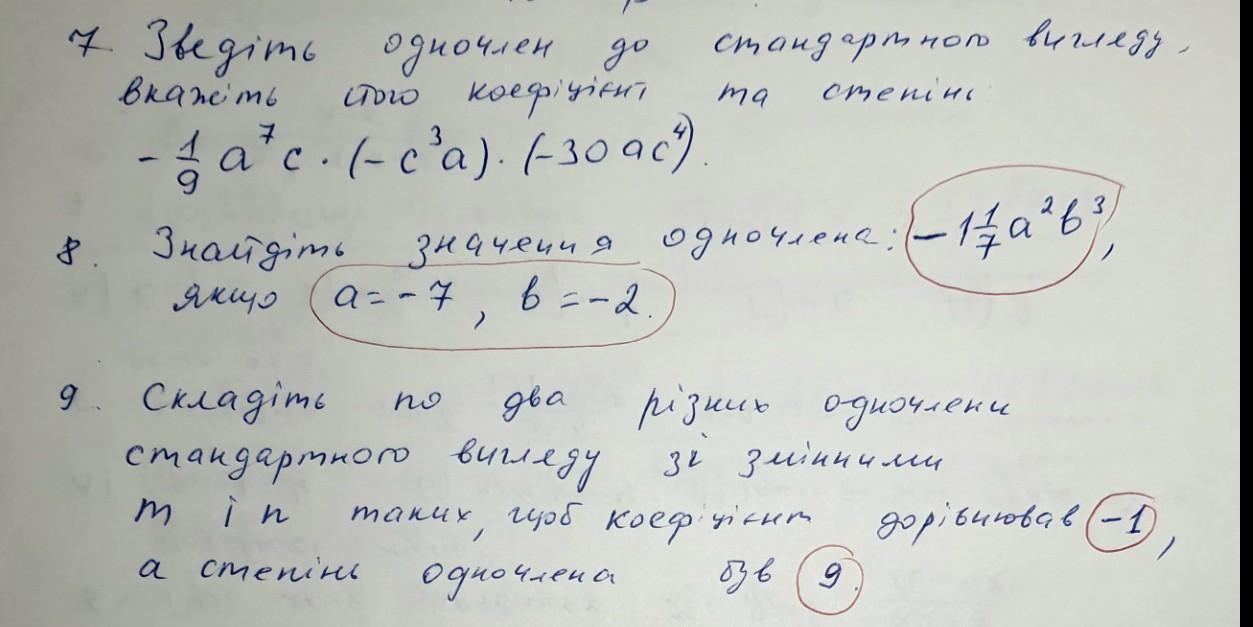 7. Зведіть одночлен до стандартного вигляду,
вкажіть його коефіцієнт та степінь
- 1/9 a⁷c · (-c³a) · (-30ac⁴).
8. Знайдіть значення одночлена: -1 1/7 a²b³,
якщо a = -7, b = -2.
9. Складіть по два різних одночлени
стандартного вигляду зі змінними
m і n таких, щоб коефіцієнт дорівнював -1,
а степінь одночлена був 9.